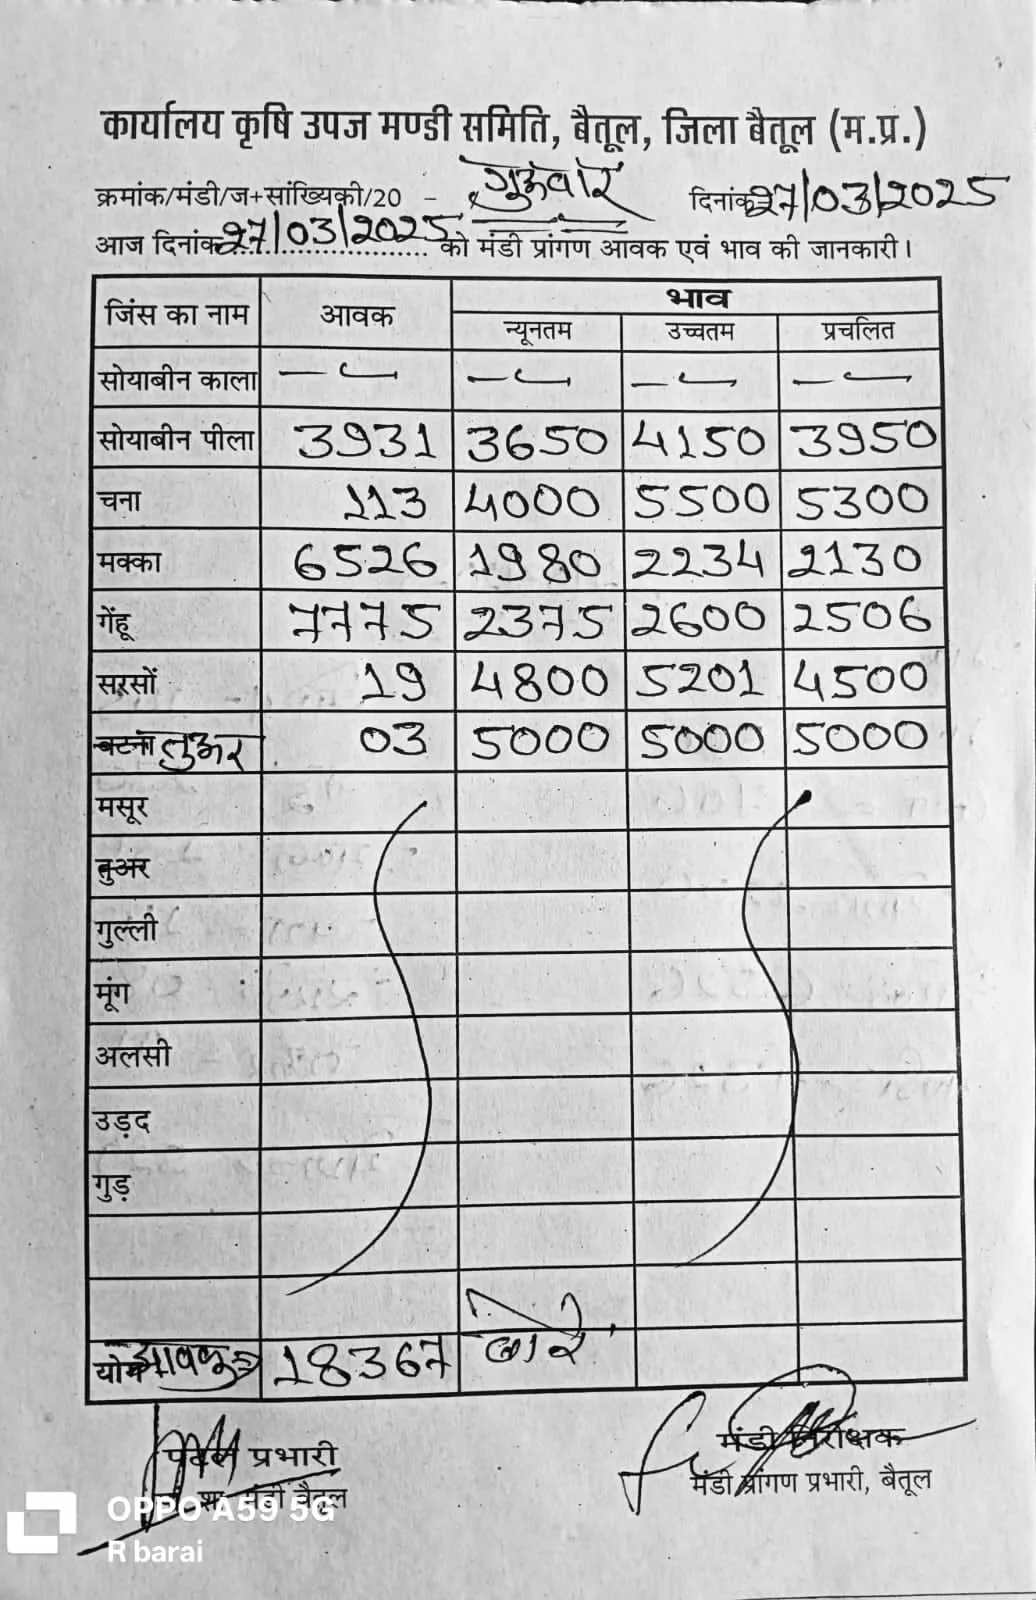 कार्यालय कृषि उपज मण्डी समिति, बैतूल, जिला बैतूल (म.प्र.)
क्रमांक/मंडी/ज+सांख्यिकी/20 - गुरुवार दिनांक 27/03/2025
आज दिनांक 27/03/2025 को मंडी प्रांगण आवक एवं भाव की जानकारी।
जिंस का नाम आवक भाव
न्यूनतम उच्चतम प्रचलित
सोयाबीन काला — — — —
सोयाबीन पीला 3931 3650 4150 3950
चना 113 4000 5500 5300
मक्का 6526 1980 2234 2130
गेंहू 7775 2375 2600 2506
सरसों 19 4800 5201 4500
बटना तुअर 03 5000 5000 5000
मसूर
तुअर
गुल्ली
मूंग
अलसी
उड़द
गुड़
योग आवक 18367 बोरे
प्रभारी मंडी निरीक्षक
मंडी बैतूल मंडी प्रांगण प्रभारी, बैतूल
OPPO A59 5G
R barai